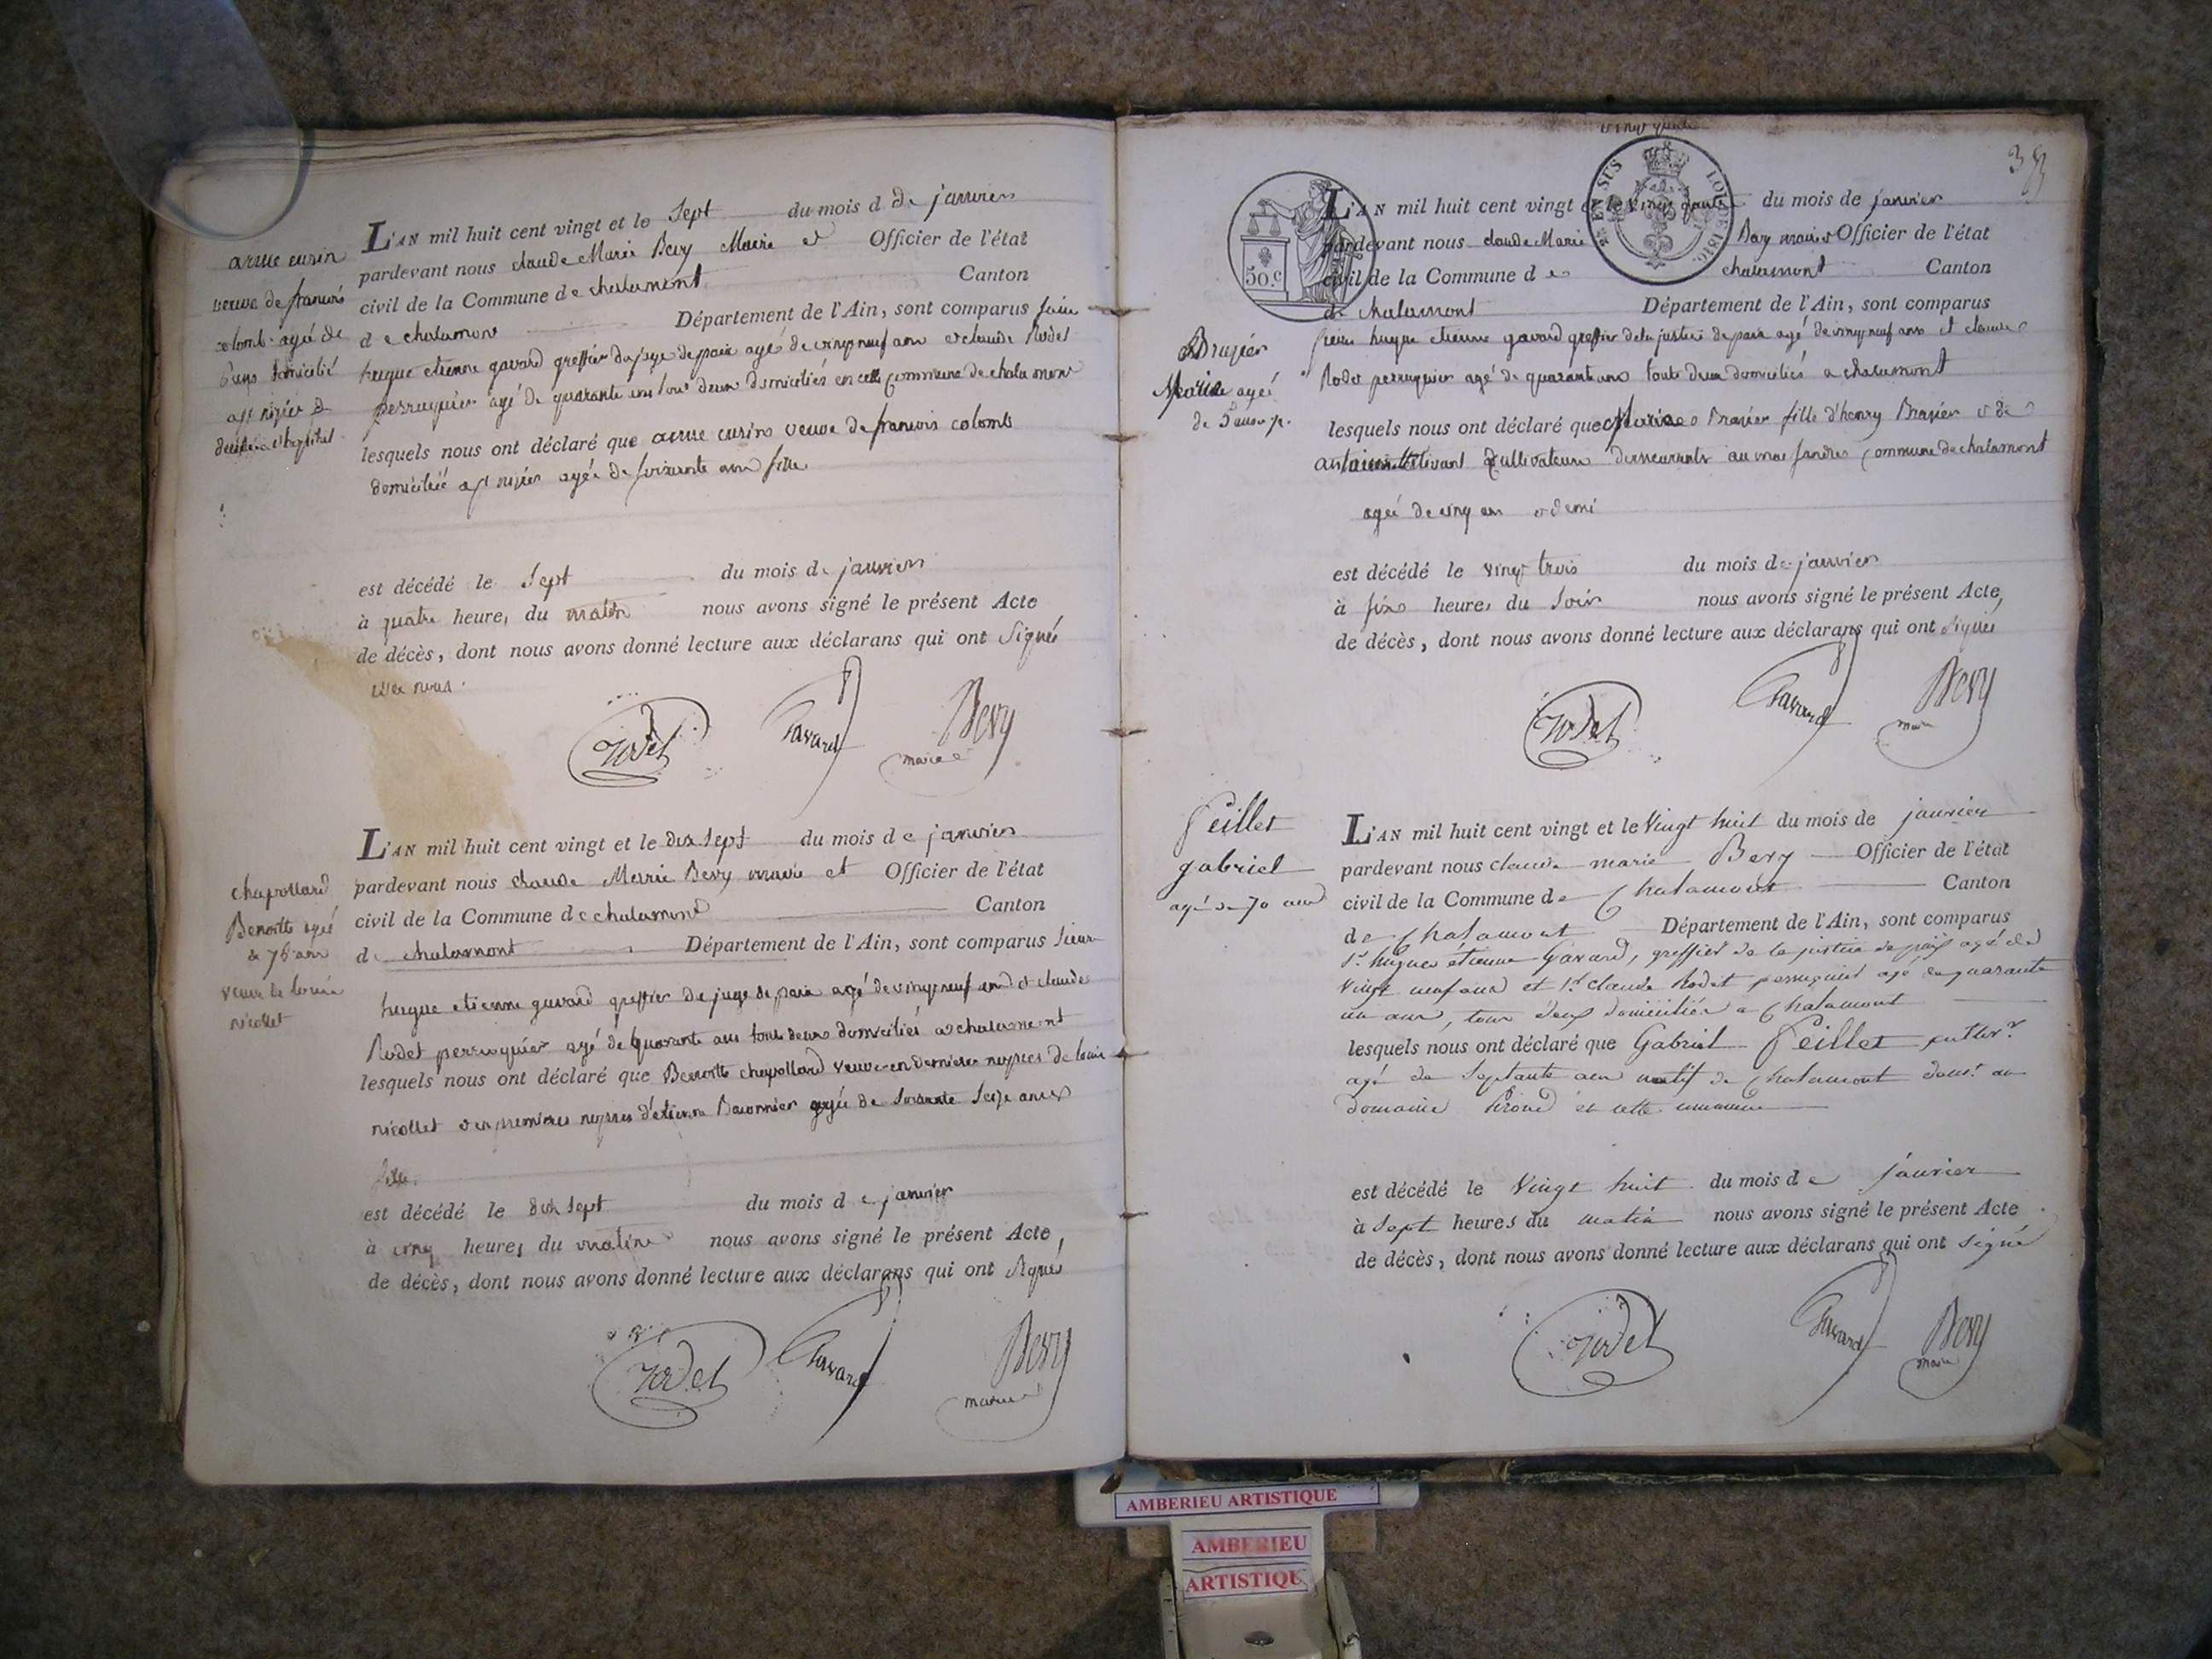 L'AN mil huit cent vingt et le Sept du mois d de janvier
pardevant nous claude Marie Bevy Maire et Officier de l'état
civil de la Commune de chalamont Canton
de chalamont Département de l'Ain, sont comparus
hugue etienne gavard greffier du juge de paix agé de vingt neuf ans et claude Rodet
perruquier agé de quarante ans tous deux domiciliés en cette Commune de chalamont
lesquels nous ont déclaré que veuve de francois colomb
domiciliée agée de soixante ans fille
est décédé le Sept du mois de janvier
à quatre heures du matin nous avons signé le présent Acte
de décès, dont nous avons donné lecture aux déclarans qui ont Signés
avec nous.
Rodet Gavard Bevy
maire
veuve de francois
colomb agée de
chapollard
Benoitte agée
de 76 ans
veuve de louis
nicollet
L'AN mil huit cent vingt et le dix Sept du mois de janvier
pardevant nous claude Marie Bevy maire et Officier de l'état
civil de la Commune de chalamont Canton
de chalamont Département de l'Ain, sont comparus Sieur
hugue etienne gavard greffier de juge de paix agé de vingt neuf ans et claude
Rodet perruquier agé de quarante ans tous deux domiciliés a chalamont
lesquels nous ont déclaré que Benoitte chapollard veuve en dernieres nopces de louis
nicollet et en premieres nopces d'etienne agée de soixante Seize ans
fille
est décédé le dix Sept du mois de janvier
à cinq heures du matin nous avons signé le présent Acte,
de décès, dont nous avons donné lecture aux déclarans qui ont Signés
Rodet Gavard Bevy
maire
35
50.C
EN SUS
LOI DE 1816.
L'AN mil huit cent vingt et le Vingt quatre du mois de janvier
pardevant nous claude Marie Bevy maire et Officier de l'état
civil de la Commune de chalamont Canton
de chalamont Département de l'Ain, sont comparus
Sieur hugue etienne gavard greffier de la justice de paix agé de vingt neuf ans et claude
Rodet perruquier agé de quarante ans tout deux domiciliés a chalamont
lesquels nous ont déclaré que Marie Brazier fille d'henry Brazier et de
Cultivateurs demeurants au Commune de chalamont
agée de cinq ans et demi
est décédé le vingt trois du mois de janvier
à six heures du Soir nous avons signé le présent Acte,
de décès, dont nous avons donné lecture aux déclarans qui ont Signés
Rodet Gavard Bevy
maire
Brazier
Marie agée
de 5 ans
Peillet
gabriel
agé de 70 ans
L'AN mil huit cent vingt et le Vingt huit du mois de janvier
pardevant nous claude marie Bevy Officier de l'état
civil de la Commune de Chalamont Canton
de Chalamont Département de l'Ain, sont comparus
Sr. hugues étienne Gavard, greffier de la justice de paix agé de
Vingt neuf ans et Sr. claude Rodet perruquier agé de quarante
un ans, tous deux domiciliés a Chalamont
lesquels nous ont déclaré que Gabriel Peillet cultivr.
agé de Septante ans natif de Chalamont demt. au
domaine en cette commune
est décédé le Vingt huit du mois de janvier
à Sept heures du matin nous avons signé le présent Acte
de décès, dont nous avons donné lecture aux déclarans qui ont Signé
Rodet Gavard Bevy
maire
AMBERIEU ARTISTIQUE
AMBERIEU
ARTISTIQU